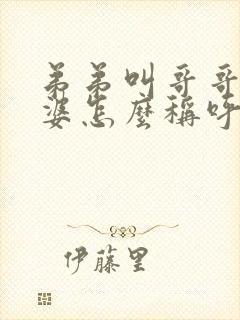 弟弟叫哥哥
婆怎麼稱呼
伊藤里